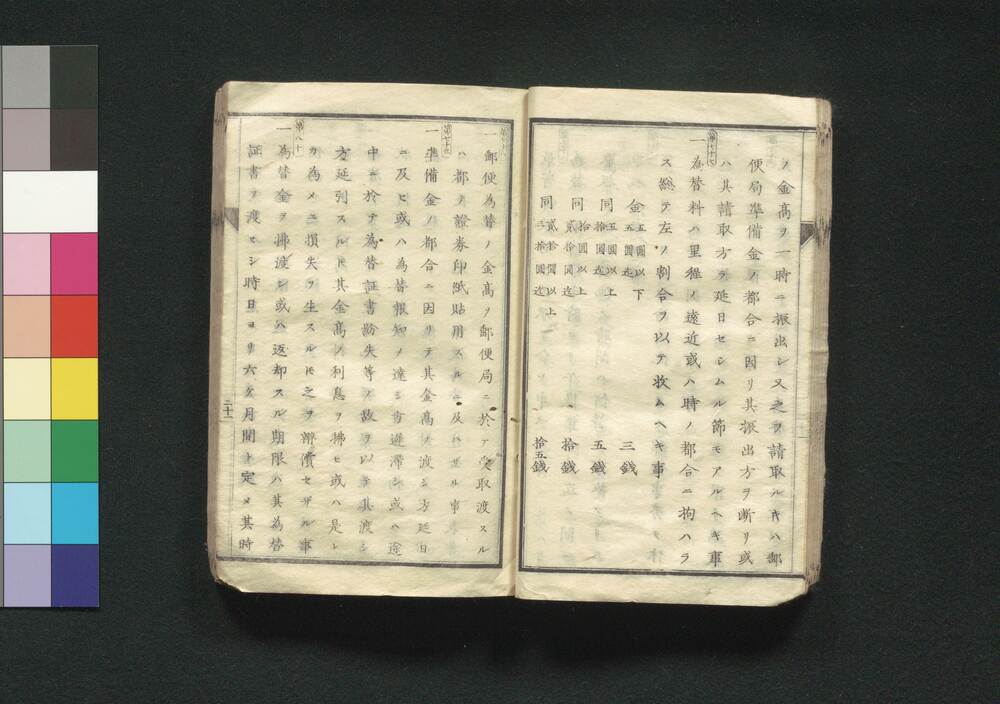 ノ金高ヲ一時ニ振出シ又之ヲ請取ルキハ郵
便局準備金ノ都合ニ因リ其振出方ヲ断リ或
ハ其請取方ヲ延日セシムル節モアルヘキ事
第七十七
一為替料ハ里程ノ遠近或ハ時ノ都合ニ拘ハラ
ス総テ左ノ割合ヲ以テ収ムヘキ事
金 五圓以下 三銭
同 五圓以上 拾圓迄 五銭
同 拾圓以上 貳拾圓迄 拾銭
同 貳拾圓以上 三拾圓迄 拾五銭
第七十八
一郵便為替ノ金高ヲ郵便局ニ於テ受取渡スル
ハ都テ證券印紙貼用スルニ及ハサル事
第七十九
一準備金ノ都合ニ因リテ其金高ノ渡シ方延日
ニ及ヒ或ハ為替報知ノ達シ方遅滞シ或ハ途
中ニ於テ為替証書紛失等ノ故ヲ以テ其渡シ
方延引スルトモ其金高ノ利息ヲ拂ヒ或ハ是レ
カ為メニ損失ヲ生スルトモ之ヲ辨償セザル事
第八十
一為替金ヲ拂渡シ或ハ返却スル期限ハ其為替
証書ヲ渡セシ時日ヨリ六ケ月間ト定メ其時
二十一